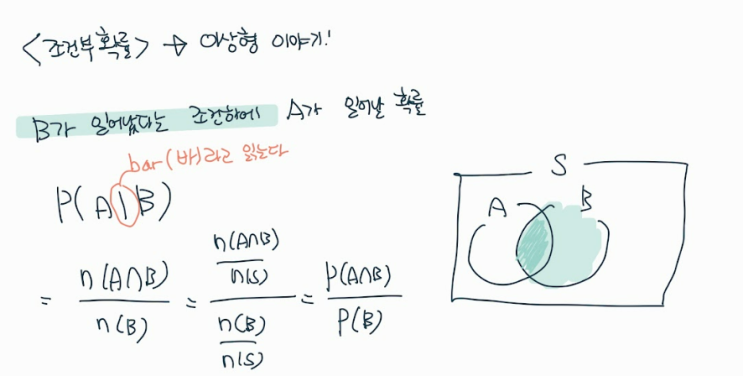 <조건부확률> → 이상형 이야기!
B가 일어났다는 조건하에 A가 일어날 확률
bar(바)라고 읽는다
P(A|B)
= n(A∩B)/n(B) = (n(A∩B)/n(S))/(n(B)/n(S)) = P(A∩B)/P(B)
S
A B